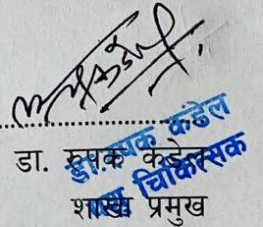 डा. रुपक कंडेल
शाखा प्रमुख
डा. रुपक कंडेल
पशु चिकित्सक